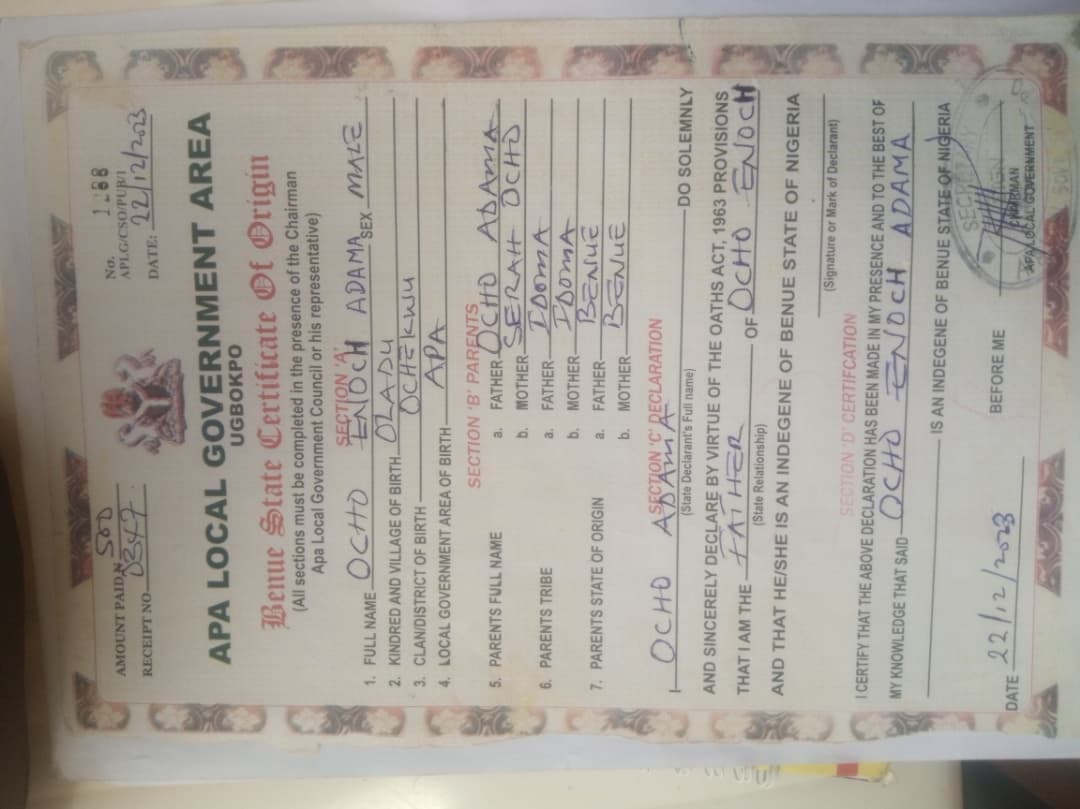 AMOUNT PAID N 500
RECEIPT NO. 0347
No. 1288
APLG/CSO/PUB/1
DATE: 22/12/2023
APA LOCAL GOVERNMENT AREA
UGBOKPO
Benue State Certificate Of Origin
(All sections must be completed in the presence of the Chairman
Apa Local Government Council or his representative)
SECTION 'A'
1. FULL NAME OCHO ENOCH ADAMA SEX MALE
2. KINDRED AND VILLAGE OF BIRTH OLADU
3. CLAN/DISTRICT OF BIRTH OCHEKWU
4. LOCAL GOVERNMENT AREA OF BIRTH APA
SECTION 'B' PARENTS
5. PARENTS FULL NAME a. FATHER OCHO ADAMA
b. MOTHER SERAH OCHO
6. PARENTS TRIBE a. FATHER IDOMA
b. MOTHER IDOMA
7. PARENTS STATE OF ORIGIN a. FATHER BENUE
b. MOTHER BENUE
SECTION 'C' DECLARATION
I OCHO ADAMA DO SOLEMNLY
(State Declarant's Full name)
AND SINCERELY DECLARE BY VIRTUE OF THE OATHS ACT, 1963 PROVISIONS
THAT I AM THE FATHER OF OCHO ENOCH
(State Relationship)
AND THAT HE/SHE IS AN INDEGENE OF BENUE STATE OF NIGERIA
(Signature or Mark of Declarant)
SECTION 'D' CERTIFCATION
I CERTIFY THAT THE ABOVE DECLARATION HAS BEEN MADE IN MY PRESENCE AND TO THE BEST OF
MY KNOWLEDGE THAT SAID OCHO ENOCH ADAMA
IS AN INDEGENE OF BENUE STATE OF NIGERIA
BEFORE ME
DATE 22/12/2023
CHAIRMAN
APA LOCAL GOVERNMENT